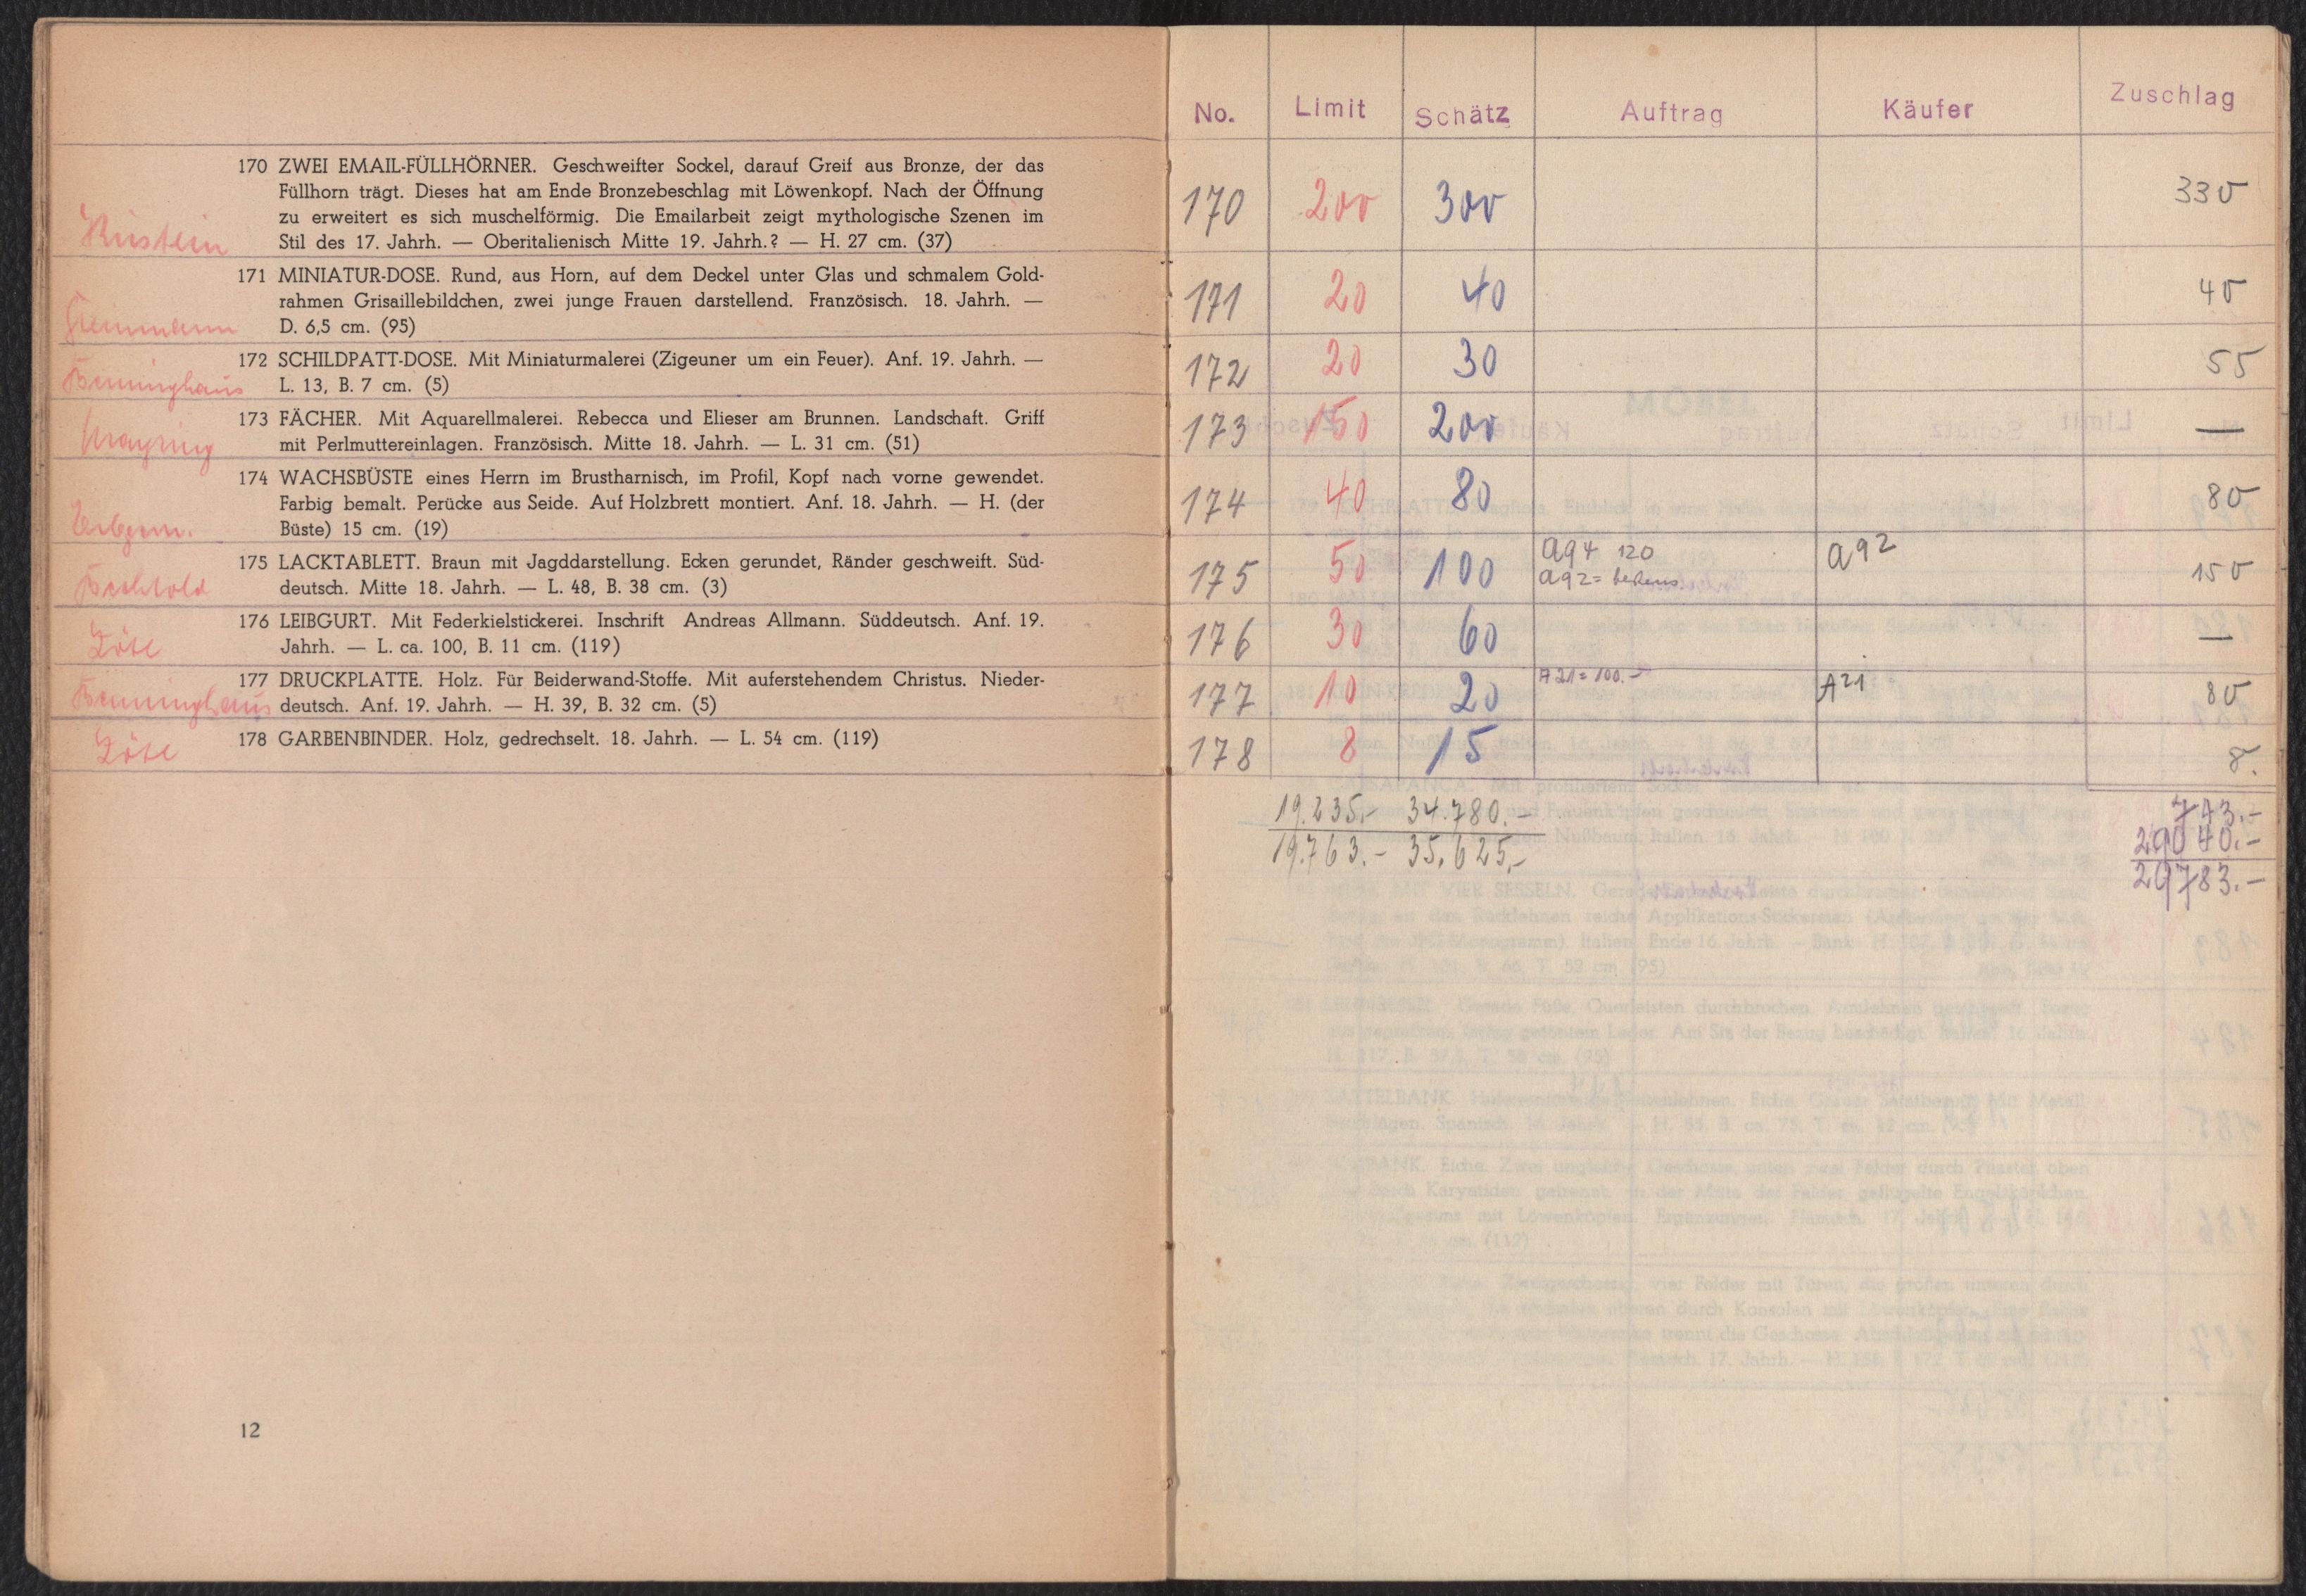 170 ZWEI EMAIL-FÜLLHÖRNER. Geschweifter Sockel, darauf Greif aus Bronze, der das
Füllhorn trägt. Dieses hat am Ende Bronzebeschlag mit Löwenkopf. Nach der Öffnung
zu erweitert es sich muschelförmig. Die Emailarbeit zeigt mythologische Szenen im
Stil des 17. Jahrh. — Oberitalienisch Mitte 19. Jahrh.? — H. 27 cm. (37)
171 MINIATUR-DOSE. Rund, aus Horn, auf dem Deckel unter Glas und schmalem Gold-
rahmen Grisaillebildchen, zwei junge Frauen darstellend. Französisch. 18. Jahrh. —
D. 6,5 cm. (95)
172 SCHILDPATT-DOSE. Mit Miniaturmalerei (Zigeuner um ein Feuer). Anf. 19. Jahrh. —
Benninghaus L. 13, B. 7 cm. (5)
173 FÄCHER. Mit Aquarellmalerei. Rebecca und Elieser am Brunnen. Landschaft. Griff
mit Perlmuttereinlagen. Französisch. Mitte 18. Jahrh. — L. 31 cm. (51)
174 WACHSBÜSTE eines Herrn im Brustharnisch, im Profil, Kopf nach vorne gewendet.
Farbig bemalt. Perücke aus Seide. Auf Holzbrett montiert. Anf. 18. Jahrh. — H. (der
Büste) 15 cm. (19)
175 LACKTABLETT. Braun mit Jagddarstellung. Ecken gerundet, Ränder geschweift. Süd-
Bechtold deutsch. Mitte 18. Jahrh. — L. 48, B. 38 cm. (3)
176 LEIBGURT. Mit Federkielstickerei. Inschrift Andreas Allmann. Süddeutsch. Anf. 19.
Jahrh. — L. ca. 100, B. 11 cm. (119)
177 DRUCKPLATTE. Holz. Für Beiderwand-Stoffe. Mit auferstehendem Christus. Nieder-
Benninghaus deutsch. Anf. 19. Jahrh. — H. 39, B. 32 cm. (5)
178 GARBENBINDER. Holz, gedrechselt. 18. Jahrh. — L. 54 cm. (119)
12
No. Limit Schätz Auftrag Käufer Zuschlag
170 200 300 330
171 20 40 40
172 20 30 55
173 150 200 —
174 40 80 80
175 50 100 a94 120 a92 150
a92=
176 30 60 —
177 10 20 A21=100.- A21 80
178 8 15 8.
19.235,- 34.780.- 743.-
29040.-
19.763.- 35.625,-
29783.-